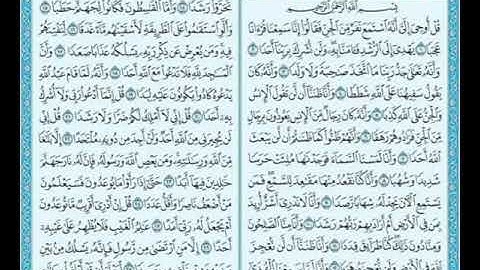 بِسْمِ اللَّهِ الرَّحْمَٰنِ الرَّحِيمِ
قُلْ أُوحِيَ إِلَيَّ أَنَّهُ اسْتَمَعَ نَفَرٌ مِنَ الْجِنِّ فَقَالُوا إِنَّا سَمِعْنَا قُرْآنًا
عَجَبًا ١ يَهْدِي إِلَى الرُّشْدِ فَآمَنَّا بِهِ وَلَنْ نُشْرِكَ بِرَبِّنَا أَحَدًا ٢
وَأَنَّهُ تَعَالَىٰ جَدُّ رَبِّنَا مَا اتَّخَذَ صَاحِبَةً وَلَا وَلَدًا ٣ وَأَنَّهُ كَانَ
يَقُولُ سَفِيهُنَا عَلَى اللَّهِ شَطَطًا ٤ وَأَنَّا ظَنَنَّا أَنْ لَنْ تَقُولَ الْإِنْسُ
وَالْجِنُّ عَلَى اللَّهِ كَذِبًا ٥ وَأَنَّهُ كَانَ رِجَالٌ مِنَ الْإِنْسِ يَعُوذُونَ بِرِجَالٍ
مِنَ الْجِنِّ فَزَادُوهُمْ رَهَقًا ٦ وَأَنَّهُمْ ظَنُّوا كَمَا ظَنَنْتُمْ أَنْ لَنْ يَبْعَثَ
اللَّهُ أَحَدًا ٧ وَأَنَّا لَمَسْنَا السَّمَاءَ فَوَجَدْنَاهَا مُلِئَتْ حَرَسًا
شَدِيدًا وَشُهُبًا ٨ وَأَنَّا كُنَّا نَقْعُدُ مِنْهَا مَقَاعِدَ لِلسَّمْعِ فَمَنْ
يَسْتَمِعِ الْآنَ يَجِدْ لَهُ شِهَابًا رَصَدًا ٩ وَأَنَّا لَا نَدْرِي أَشَرٌّ أُرِيدَ بِمَنْ
فِي الْأَرْضِ أَمْ أَرَادَ بِهِمْ رَبُّهُمْ رَشَدًا ١٠ وَأَنَّا مِنَّا الصَّالِحُونَ
وَمِنَّا دُونَ ذَٰلِكَ كُنَّا طَرَائِقَ قِدَدًا ١١ وَأَنَّا ظَنَنَّا أَنْ لَنْ نُعْجِزَ
تَحَرَّوْا رَشَدًا ١٤ وَأَمَّا الْقَاسِطُونَ فَكَانُوا لِجَهَنَّمَ حَطَبًا ١٥
وَأَنْ لَوِ اسْتَقَامُوا عَلَى الطَّرِيقَةِ لَأَسْقَيْنَاهُمْ مَاءً غَدَقًا ١٦ لِنَفْتِنَهُمْ
فِيهِ وَمَنْ يُعْرِضْ عَنْ ذِكْرِ رَبِّهِ يَسْلُكْهُ عَذَابًا صَعَدًا ١٧ وَأَنَّ
الْمَسَاجِدَ لِلَّهِ فَلَا تَدْعُوا مَعَ اللَّهِ أَحَدًا ١٨ وَأَنَّهُ لَمَّا قَامَ عَبْدُ اللَّهِ
يَدْعُوهُ كَادُوا يَكُونُونَ عَلَيْهِ لِبَدًا ١٩ قُلْ إِنَّمَا أَدْعُو رَبِّي وَلَا أُشْرِكُ
بِهِ أَحَدًا ٢٠ قُلْ إِنِّي لَا أَمْلِكُ لَكُمْ ضَرًّا وَلَا رَشَدًا ٢١ قُلْ إِنِّي
لَنْ يُجِيرَنِي مِنَ اللَّهِ أَحَدٌ وَلَنْ أَجِدَ مِنْ دُونِهِ مُلْتَحَدًا ٢٢ إِلَّا بَلَاغًا
مِنَ اللَّهِ وَرِسَالَاتِهِ وَمَنْ يَعْصِ اللَّهَ وَرَسُولَهُ فَإِنَّ لَهُ نَارَ جَهَنَّمَ
خَالِدِينَ فِيهَا أَبَدًا ٢٣ حَتَّىٰ إِذَا رَأَوْا مَا يُوعَدُونَ فَسَيَعْلَمُونَ
مَنْ أَضْعَفُ نَاصِرًا وَأَقَلُّ عَدَدًا ٢٤ قُلْ إِنْ أَدْرِي أَقَرِيبٌ مَا تُوعَدُونَ
أَمْ يَجْعَلُ لَهُ رَبِّي أَمَدًا ٢٥ عَالِمُ الْغَيْبِ فَلَا يُظْهِرُ عَلَىٰ غَيْبِهِ
أَحَدًا ٢٦ إِلَّا مَنِ ارْتَضَىٰ مِنْ رَسُولٍ فَإِنَّهُ يَسْلُكُ مِنْ بَيْنِ